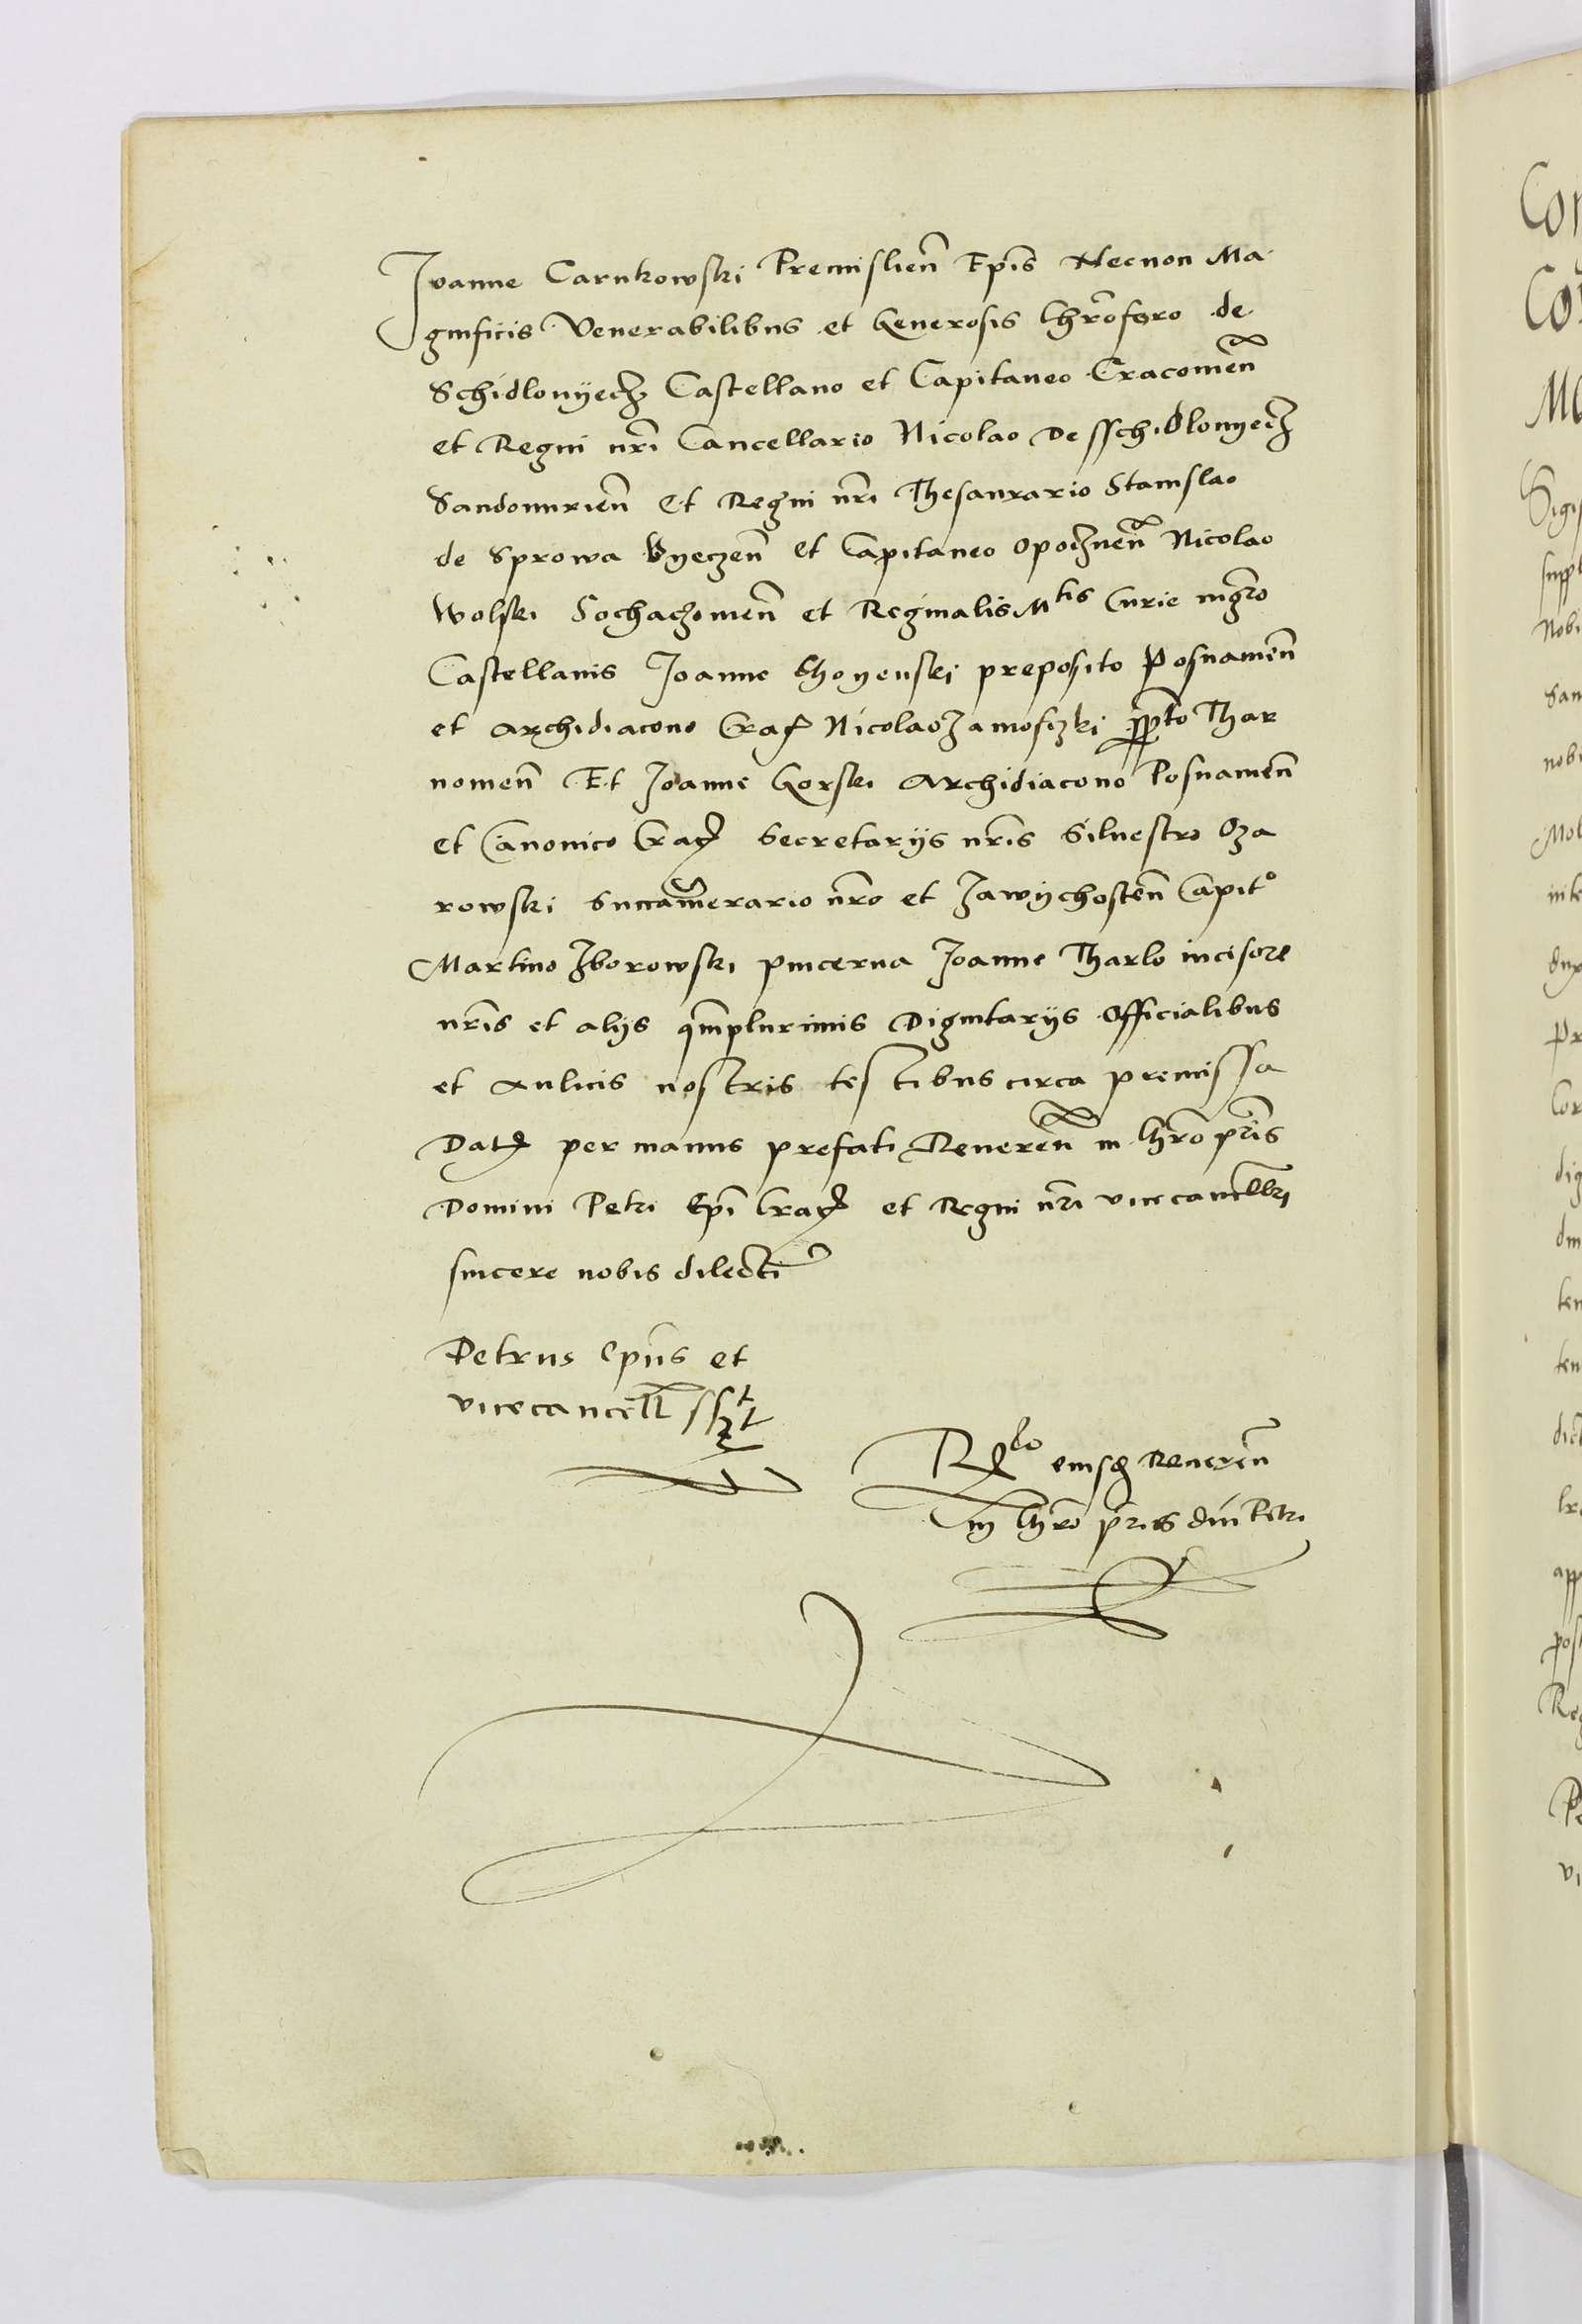 Joanne Carnkowski Premislien̄ Epīs Necnon Ma
gnificis Venerabilibus et Generosis Chrōforo de
Schidlovyecz Castellano et Capitaneo Cracovien̄
et Regni nrī Cancellario Nicolao De sschidlovyecz
Sandomirien̄ Et Regni nrī Thesaurario Stanislao
de Sprowa Vyeczen̄ et Capitaneo Opocznen̄ Nicolao
Wolski Sochaczovien̄ et Reginalis Mtis Curie mgrō
Castellanis Joanne Choyenski preposito Posnanien̄
et Archidiacono Crac Nicolao Zamosczki Thar
novien̄ Et Joanne Gorski Archidiacono Posnanien̄
et Canonico Crac Secretarijs nrīs Silvestro Oza
rowski Succamerario nrō et Zawychosten̄ Capito
Martino Zborowski pincerna Joanne Tharlo incisore
nrīs et alijs qmplurimis Dignitarijs Officialibus
et Aulicis nostris testibus circa premissa
Dat per manus prefati Reveren̄ in Chrō prīs
Domini Petri Epī Crac et Regni nrī vicecancellri
sincere nobis dilecti
Petrus Epūs et
vicecancell̄ sszt
Rlo eiusd Reveren̄
in Chrō prīs dnī Petri
Con
Con